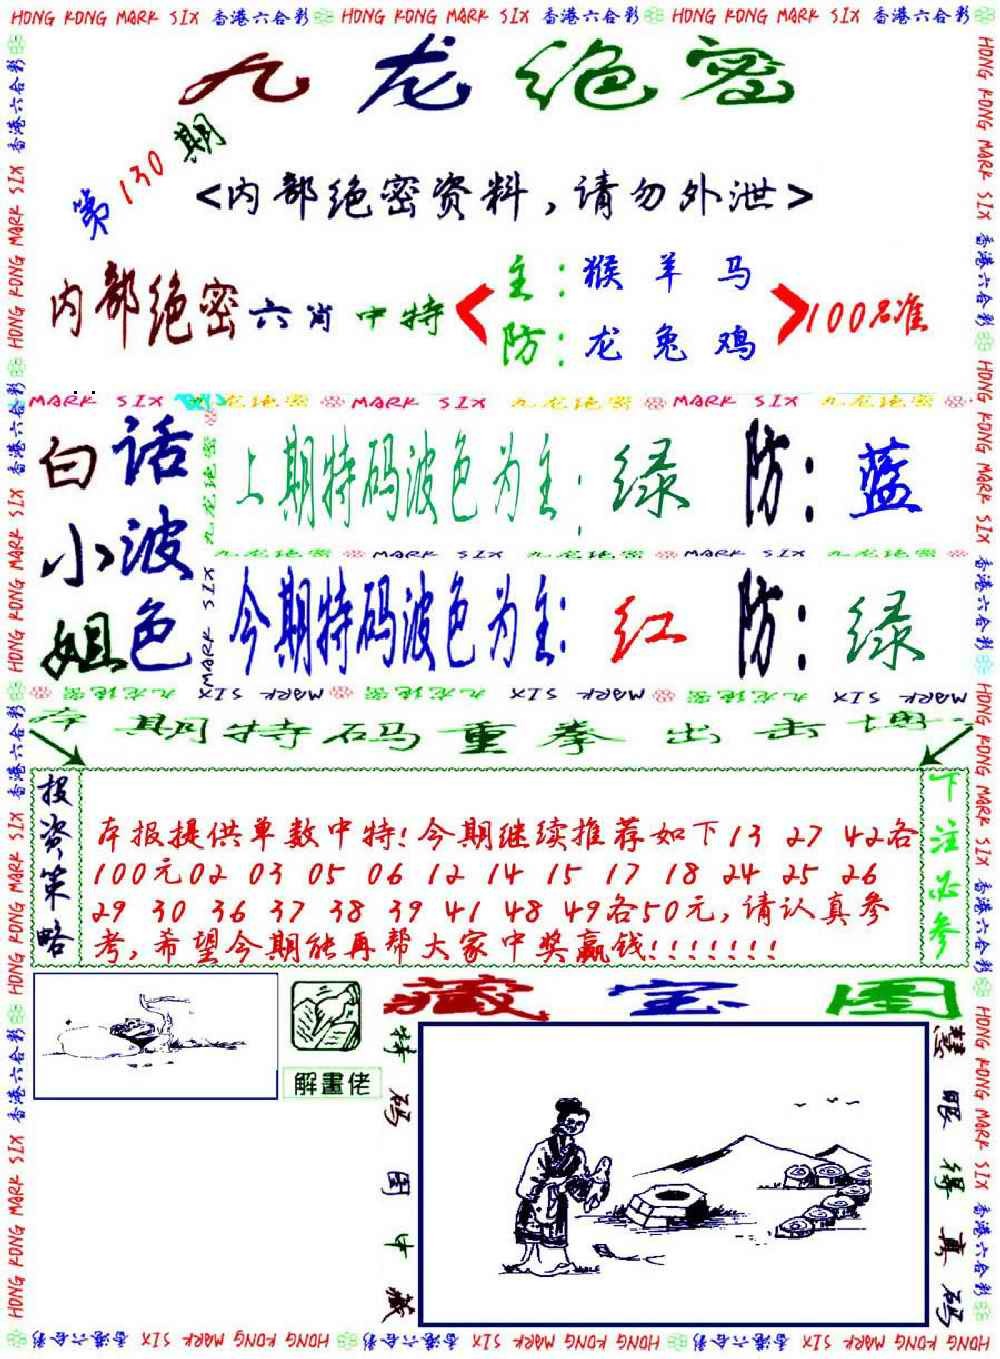 HONG KONG MARK SIX 香港六合彩 HONG KONG MARK SIX 香港六合彩 HONG KONG MARK SIX 香港六合彩
九龙绝密
第130期
<内部绝密资料，请勿外泄>
内部绝密六肖中特
主：猴 羊 马
防：龙 兔 鸡
100%准
MARK SIX 九龙绝密 MARK SIX 九龙绝密 MARK SIX 九龙绝密
白小姐
话波色
上期特码波色为主：绿 防：蓝
九龙绝密 MARK SIX 九龙绝密 MARK SIX 九龙绝密
今期特码波色为主：红 防：绿
九龙绝密 MARK SIX
九龙绝密 MARK SIX 九龙绝密 MARK SIX 九龙绝密 MARK SIX
本期特码重拳出击
投资策略
本报提供单数中特！今期继续推荐如下13 27 42各
100元02 03 05 06 12 14 15 17 18 24 25 26
29 30 36 37 38 39 41 48 49各50元，请认真参
考，希望今期能再帮大家中奖赢钱！！！！！！！
下注必参
解畫佬
藏宝图
特码图中藏
慧眼得真码
HONG KONG MARK SIX 香港六合彩 HONG KONG MARK SIX 香港六合彩 HONG KONG MARK SIX 香港六合彩